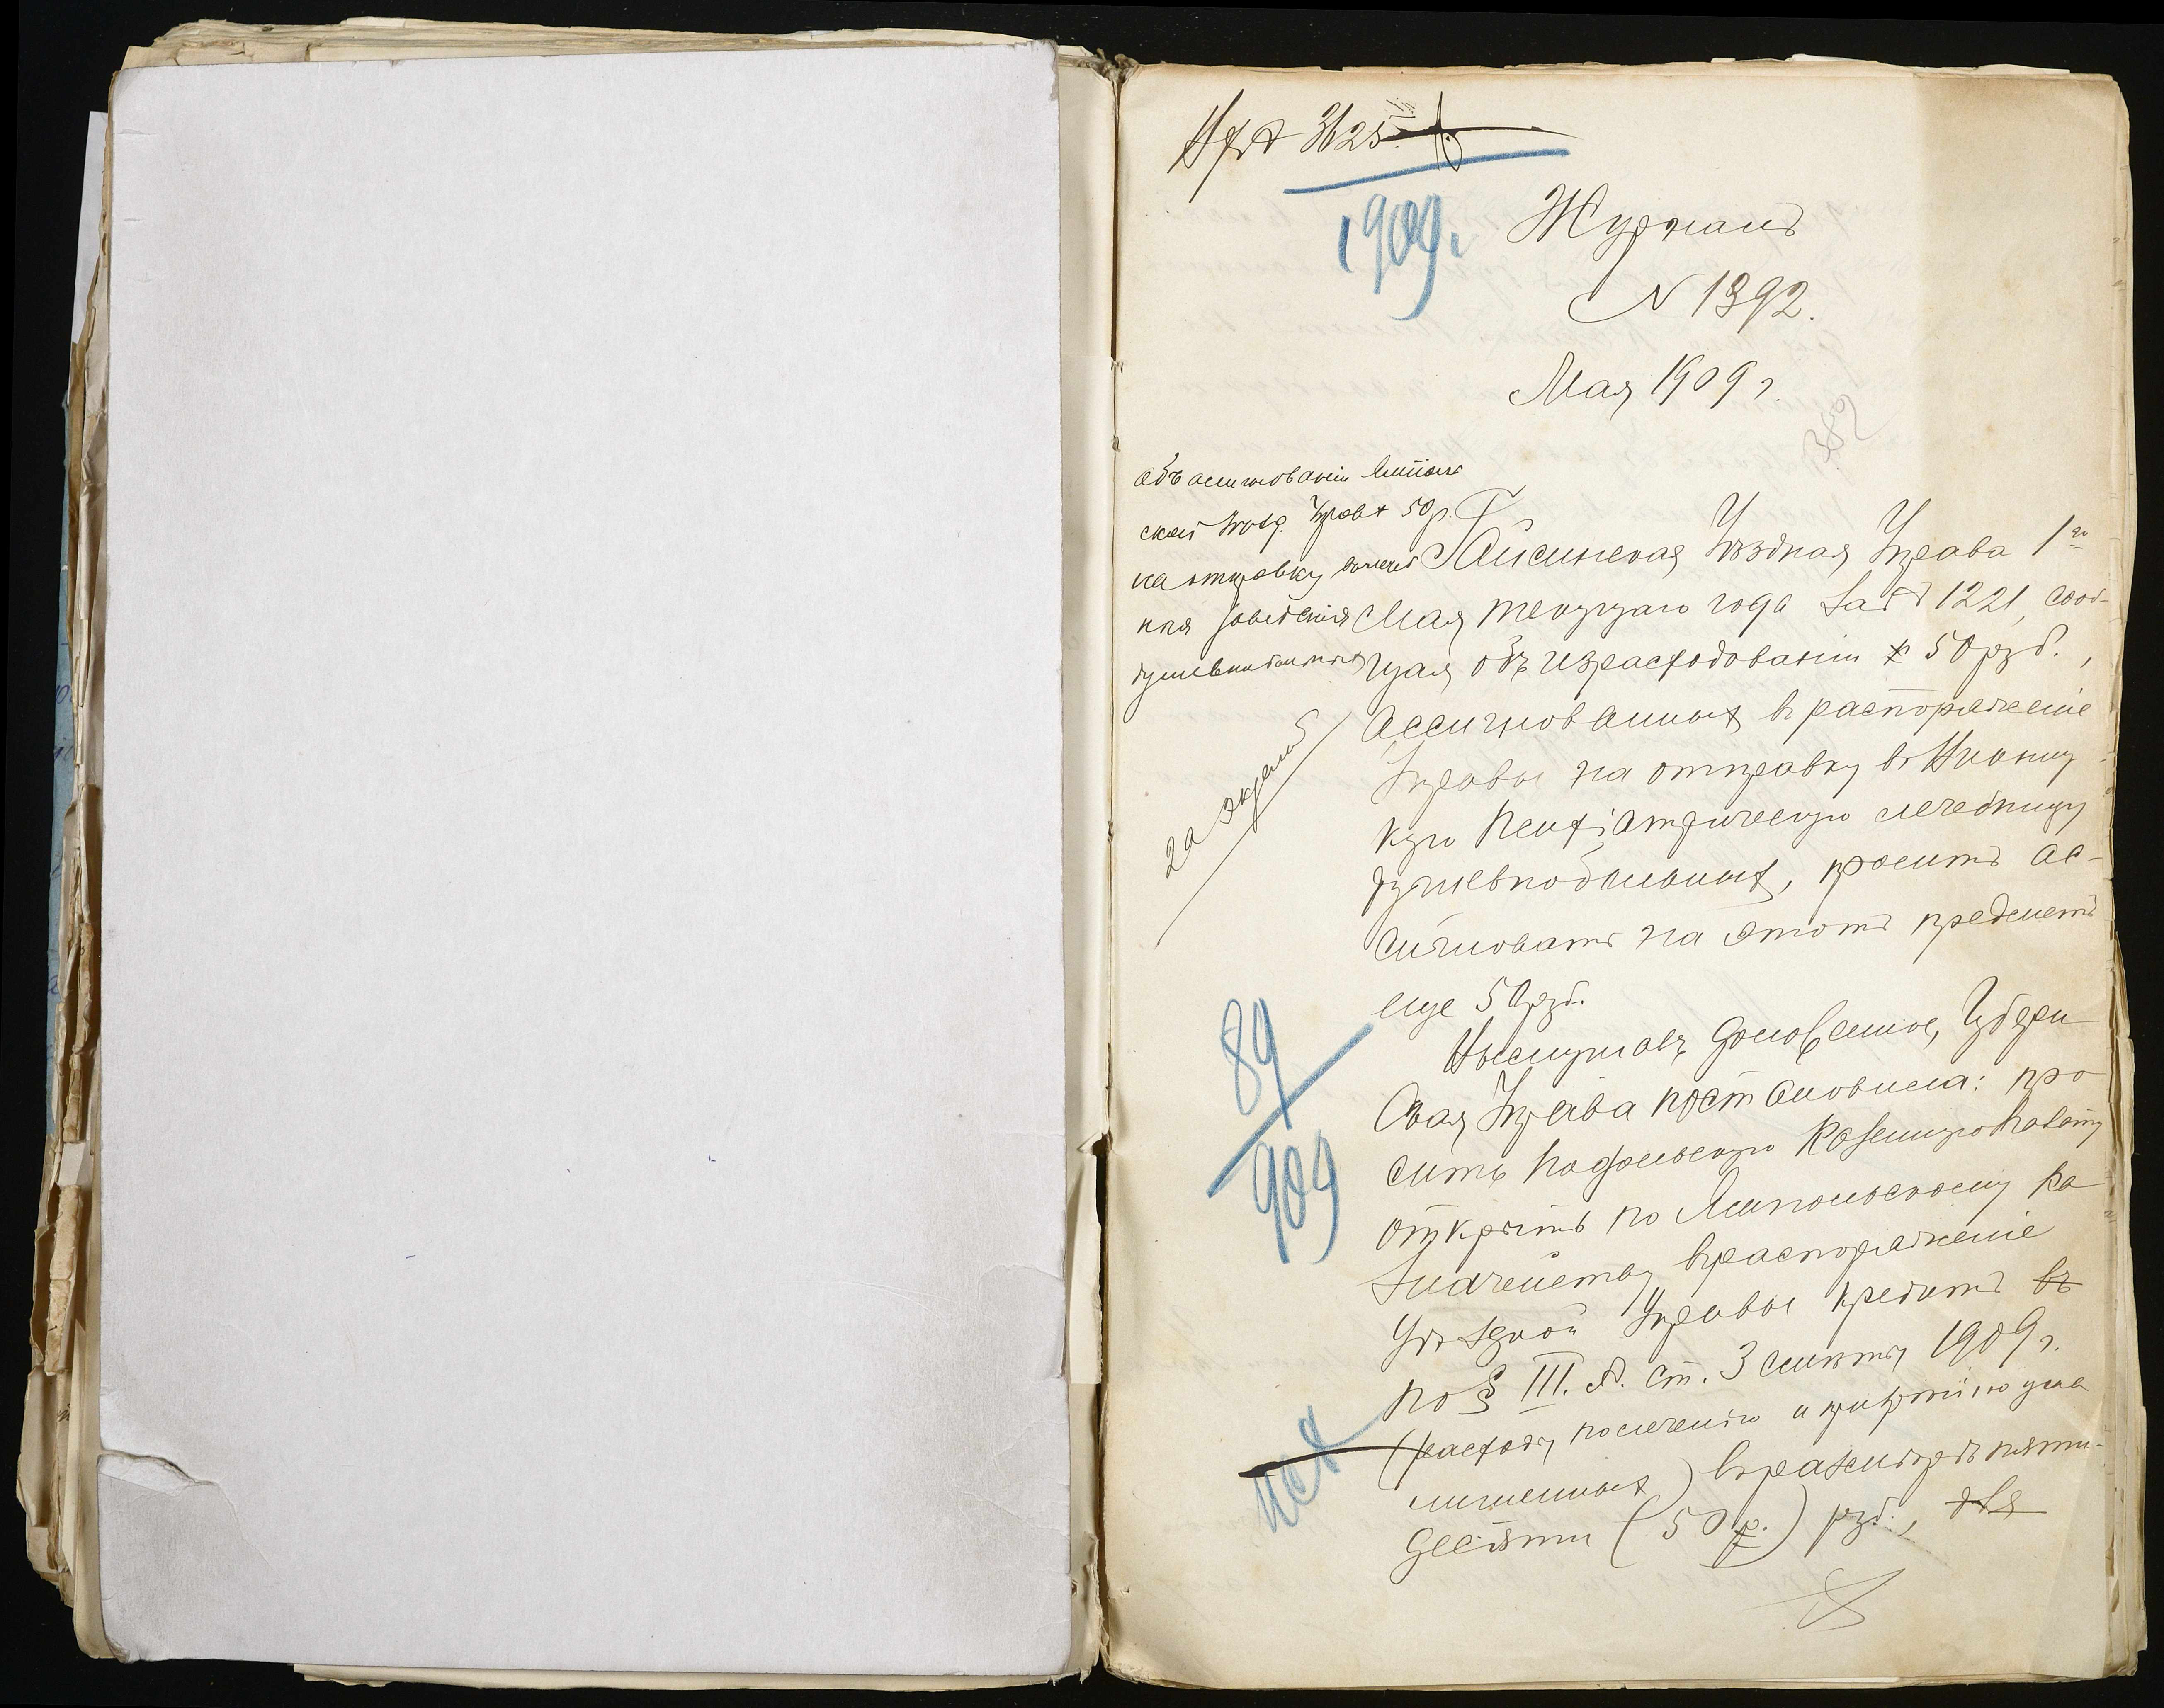 3625
1909.
Журналъ
N 1392.
Мая 1909 г.
389
объ ассигнованіи
ской Уѣзд. Управѣ 50 р.
на отправку въ лечеб
ныя заведенія
душевнобольныхъ
Гайсинская Уѣздная Управа 1го
Мая текущаго года за № 1221, сооб-
щая объ израсходованіи 50 руб.,
ассигнованныхъ въ распоряженіе
Управы на отправку въ Винниц
кую Психіатрическую лечебницу
душевнобольныхъ, проситъ ас-
сигновать на этотъ предметъ
еще 50 руб.
Выслушавъ доложенное, Губерн
ская Управа постановила: про
сить Подольскую Казенную Палату
открыть по Ямпольскому Ка
значейству въ распоряженіе
Уѣздной Управы кредитъ въ
по § III. ст. 3 смѣты 1909 г.
(расходы по леченію и призрѣнію ума
лишенныхъ) въ размѣрѣ пяти-
десяти (50 р.) руб., для
89
909
исх